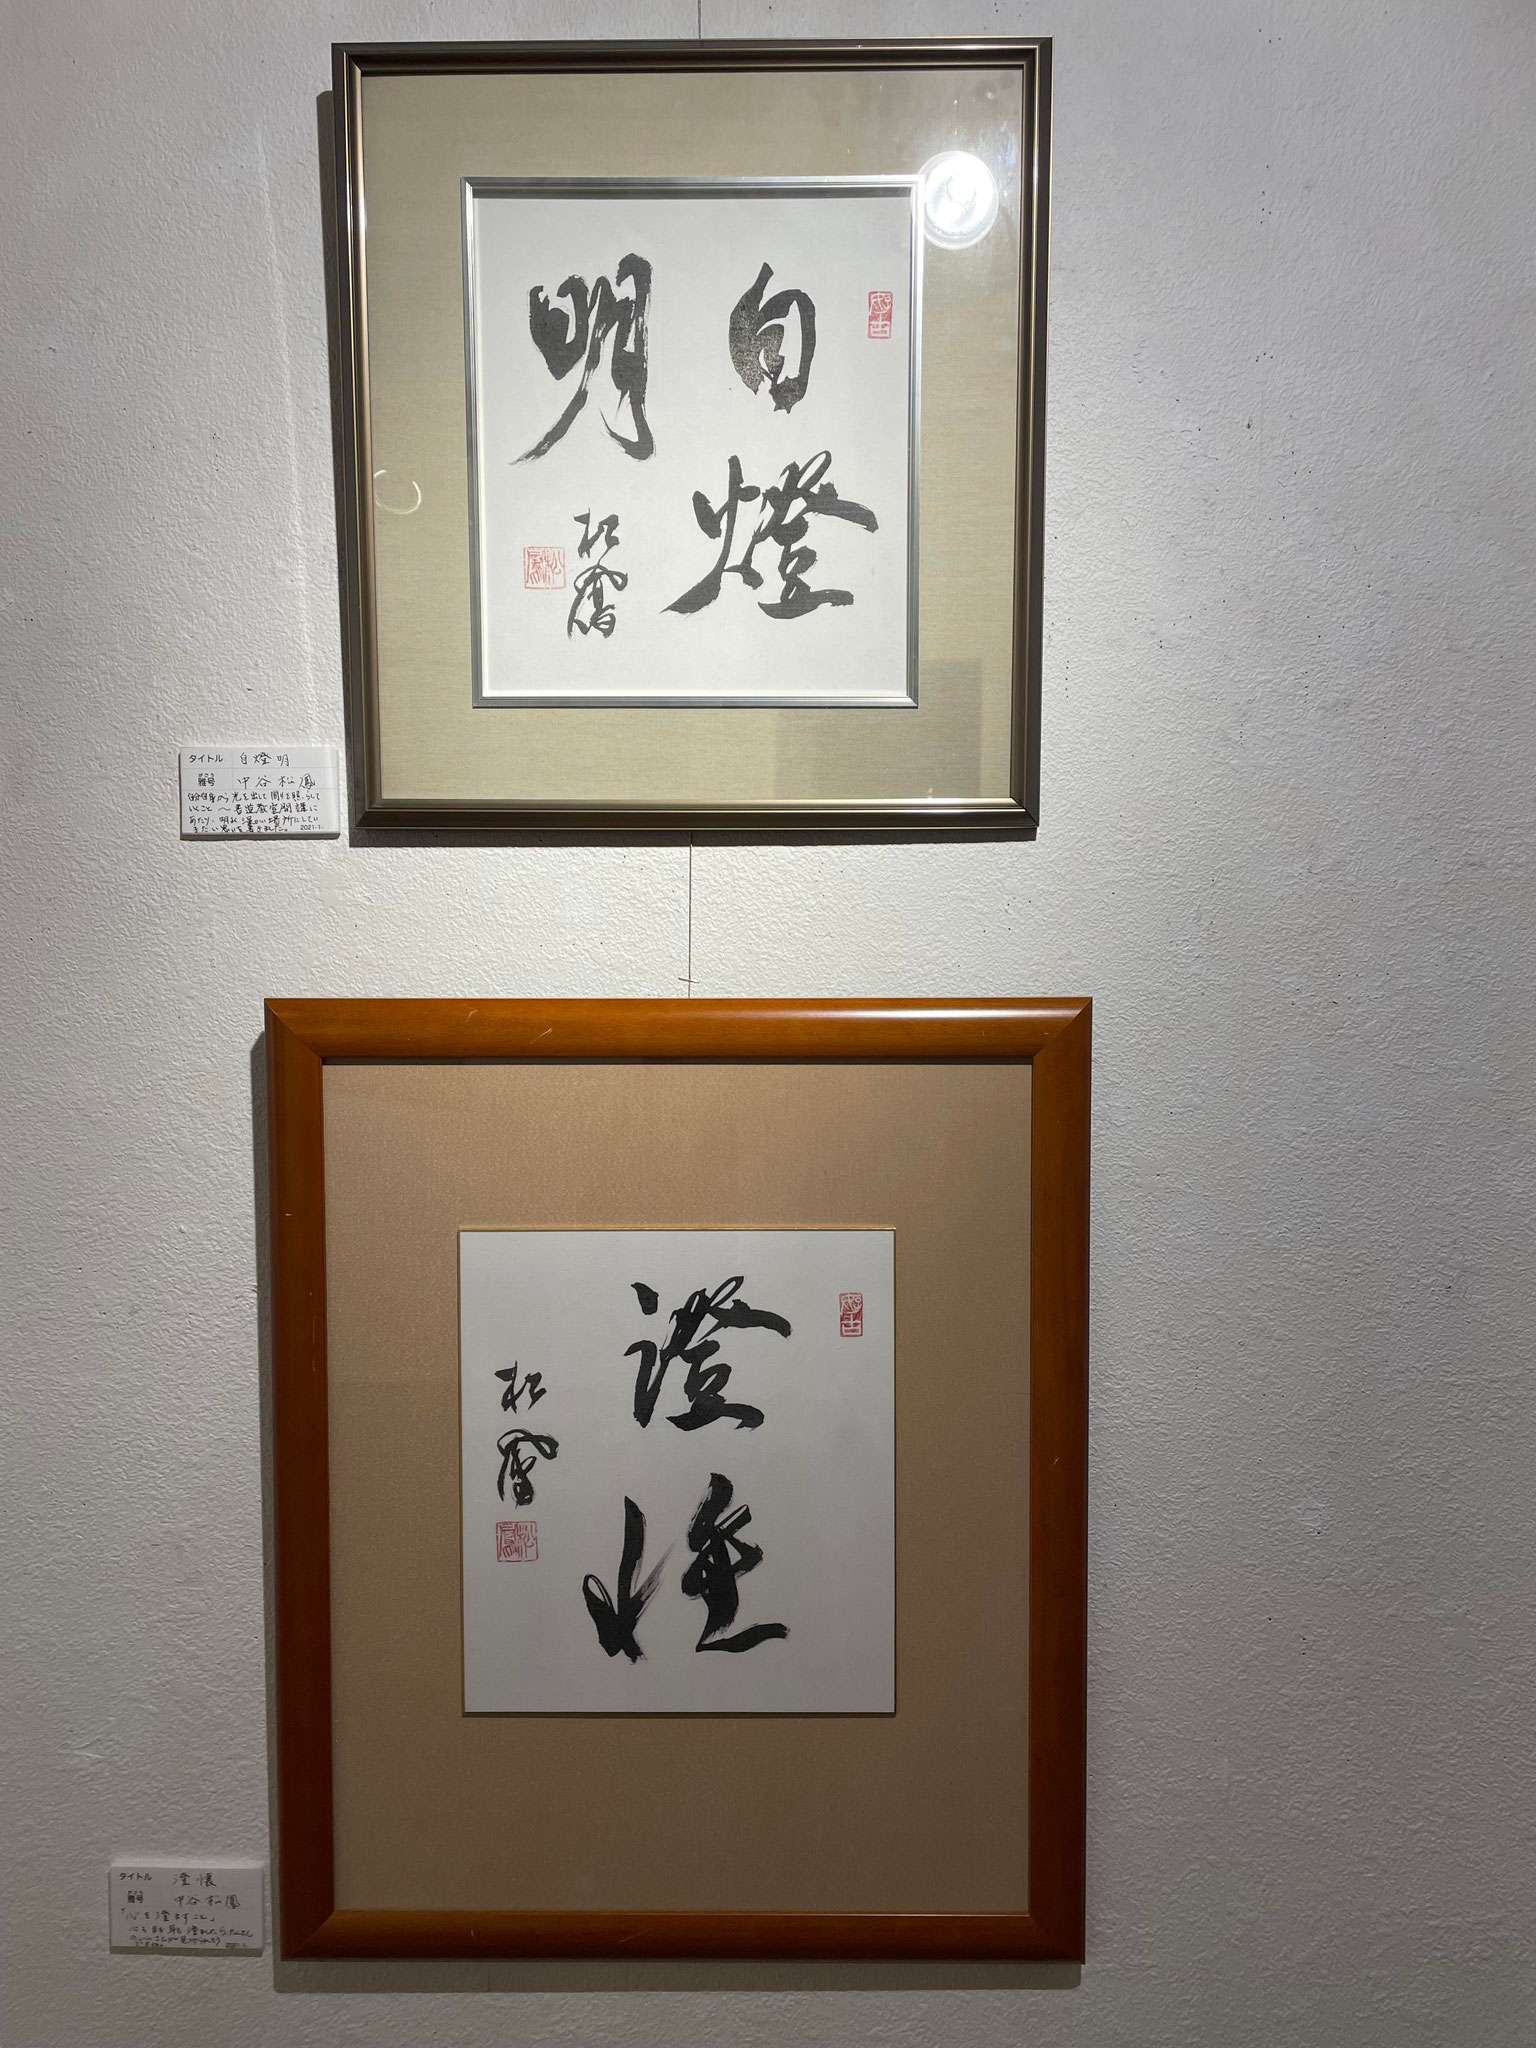 自燈
明
松鳳
松鳳
タイトル 自燈明
雅号 中谷松鳳
自分自身から光を出して周りを照らして
いくこと〜書道教室開講に
あたり、明るく温かい場所にしてい
きたい思いを書きました。 2021.1.
澄懐
松鳳
松鳳
タイトル 澄懐
雅号 中谷松鳳
「心を澄ますこと」
心も目も耳も澄ましたら、たくさん